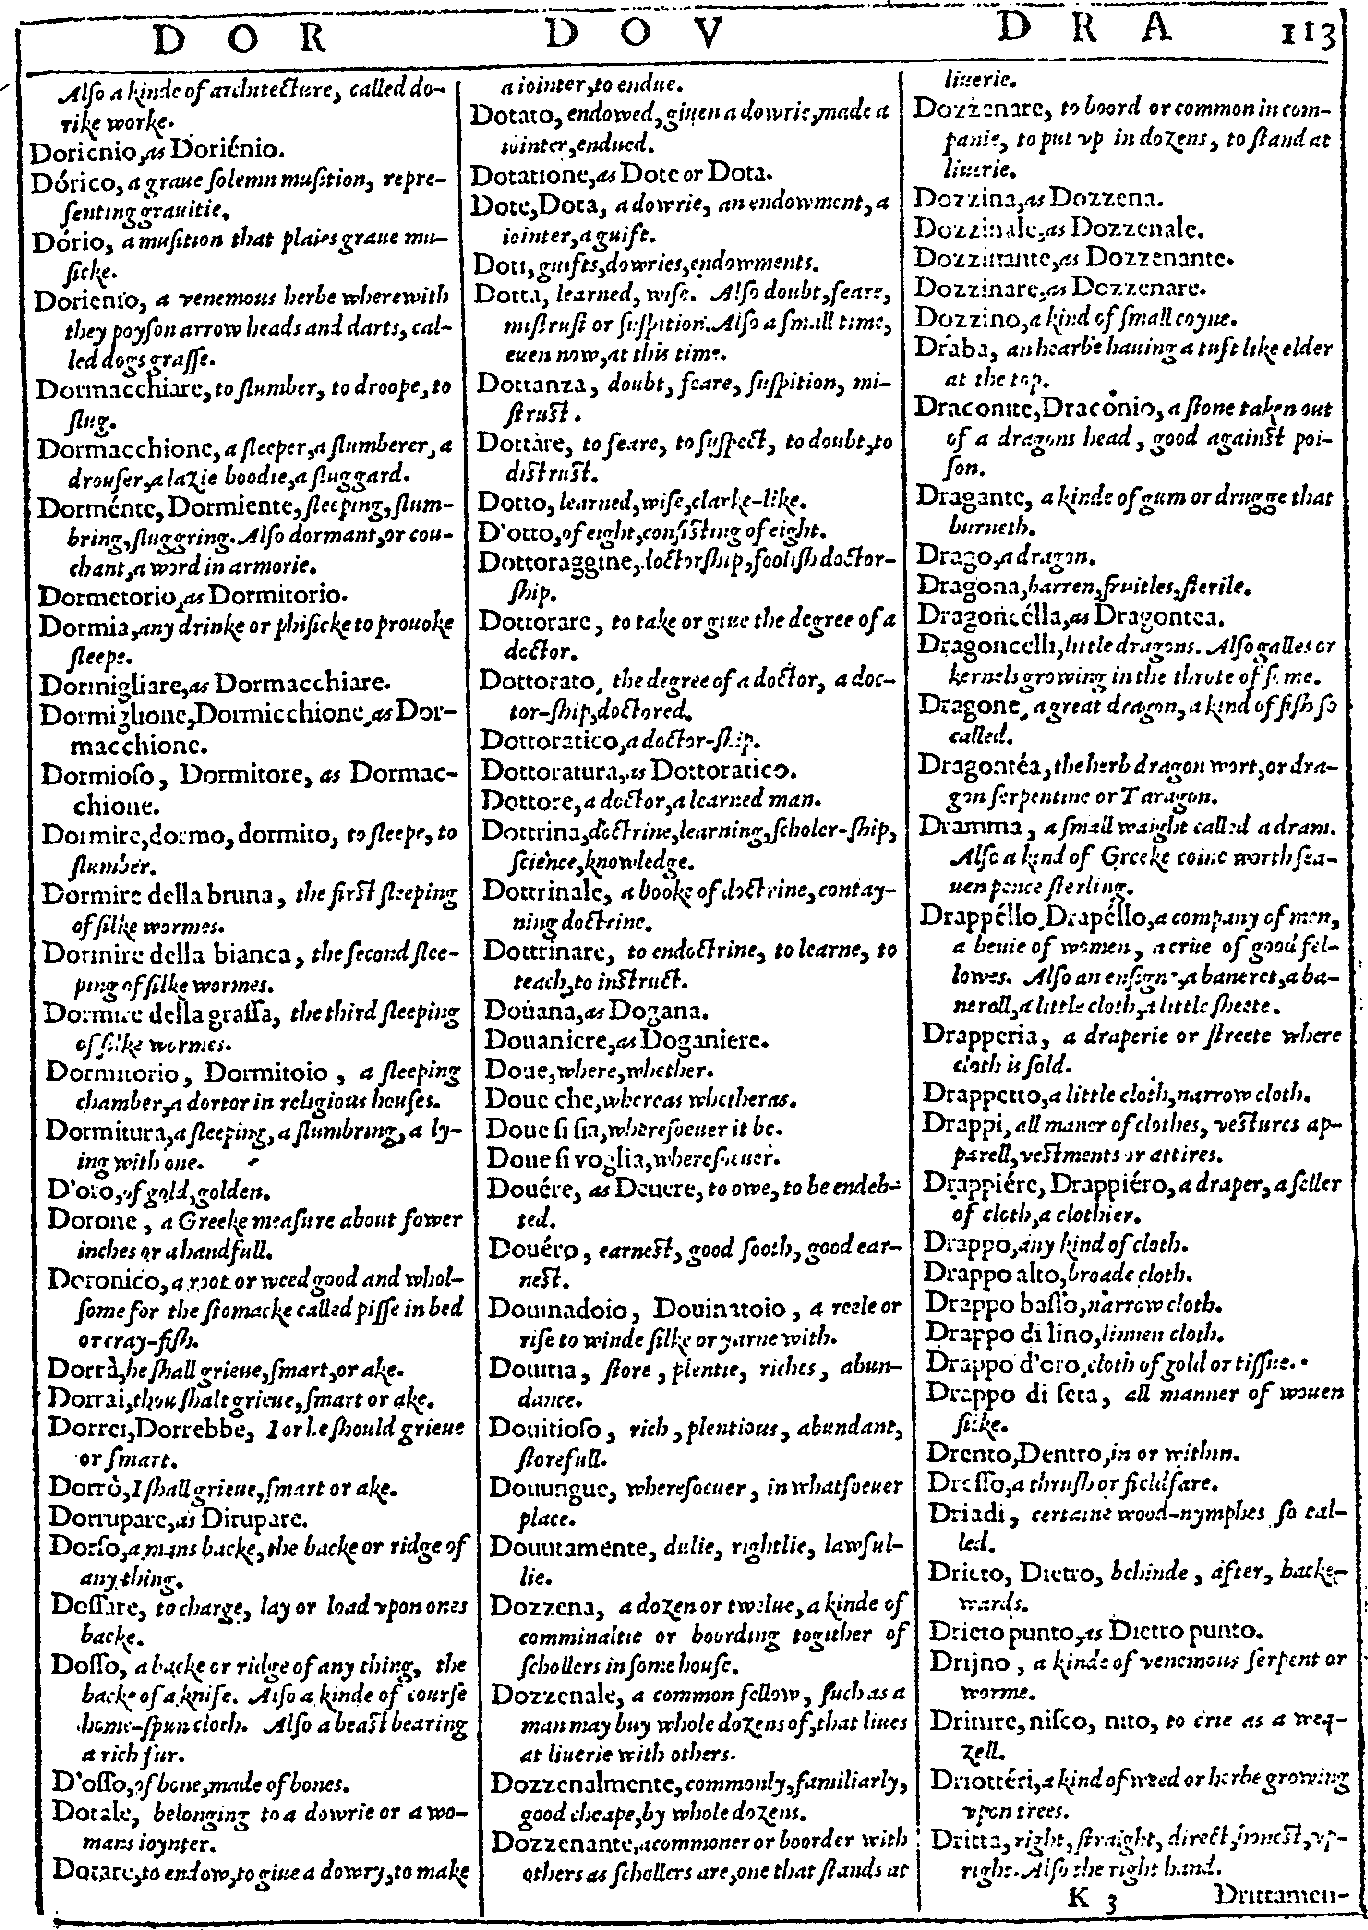 DOR DOV DRA 113
Alſo a kinde of architecture, called do-
rike worke.
Dorienio, as Doriénio.
Dórico, a graue ſolemn muſition, repre-
ſenting grauitie.
Dório, a muſition that plaies graue mu-
ſicke.
Dorienſo, a venemous herbe wherewith
they poyſon arrow heads and darts, cal-
led dogs graſſe.
Dormacchiare, to ſlumber, to droope, to
ſlug.
Dormacchione, a ſleeper, a ſlumberer, a
drouſer, a lazie boodie, a ſluggard.
Dorménte, Dormiente, ſleeping, ſlum-
bring, ſluggring. Alſo dormant, or cou-
chant, a word in armorie.
Dormetorio, as Dormitorio.
Dormia, any drinke or phiſicke to prouoke
ſleepe.
Dormigliare, as Dormacchiare.
Dormiglione, Dormicchione, as Dor-
macchione.
Dormioſo, Dormitore, as Dormac-
chione.
Dormire, dormo, dormito, to ſleepe, to
ſlumber.
Dormire della bruna, the firſt ſleeping
of ſilke wormes.
Dormire della bianca, the ſecond ſlee-
ping of ſilke wormes.
Dormire della graſſa, the third ſleeping
of ſilke wormes.
Dormitorio, Dormitoio, a ſleeping
chamber, a dortor in religious houſes.
Dormitura, a ſleeping, a ſlumbring, a ly-
ing with one.
D'oro, of gold, golden.
Dorone, a Greeke meaſure about fower
inches or a handfull.
Doronico, a root or weed good and whol-
ſome for the ſtomacke called piſſe in bed
or cray-fiſh.
Dorrà, he ſhall grieue, ſmart, or ake.
Dorrai, thou ſhalt grieue, ſmart or ake.
Dorrei, Dorrebbe, I or he ſhould grieue
or ſmart.
Dorrò, I ſhall grieue, ſmart or ake.
Dorrupare, as Dirupare.
Dorſo, a mans backe, the backe or ridge of
any thing.
Doſſare, to charge, lay or load vpon ones
backe.
Doſſo, a backe or ridge of any thing, the
backe of a knife. Alſo a kinde of courſe
home-ſpun cloth. Alſo a beaſt bearing
a rich fur.
D'oſſo, of bone, made of bones.
Dotale, belonging to a dowrie or a wo-
mans ioynter.
Dotare, to endow, to giue a dowry, to make
a iointer, to endue.
Dotato, endowed, giuen a dowrie, made a
iointer, endued.
Dotatione, as Dote or Dota.
Dote, Dota, a dowrie, an endowment, a
iointer, a guift.
Doti, guifts, dowries, endowments.
Dotta, learned, wiſe. Alſo doubt, feare,
miſtruſt or ſuſpition. Alſo a ſmall time,
euen now, at this time.
Dottanza, doubt, feare, ſuſpition, mi-
ſtruſt.
Dottàre, to feare, to ſuſpect, to doubt, to
diſtruſt.
Dotto, learned, wiſe, clarke-like.
D'otto, of eight, conſiſting of eight.
Dottoraggine, doctorſhip, fooliſh doctor-
ſhip.
Dottorare, to take or giue the degree of a
doctor.
Dottorato, the degree of a doctor, a doc-
tor-ſhip, doctored.
Dottoratico, a doctor-ſhip.
Dottoratura, as Dottoratico.
Dottore, a doctor, a learned man.
Dottrina, doctrine, learning, ſcholer-ſhip,
ſcience, knowledge.
Dottrinale, a booke of doctrine, contay-
ning doctrine.
Dottrinare, to endoctrine, to learne, to
teach, to inſtruct.
Douana, as Dogana.
Douaniere, as Doganiere.
Doue, where, whether.
Doue che, whereas whetheras.
Doue ſi ſia, whereſoeuer it be.
Doue ſi voglia, whereſoeuer.
Douére, as Deuere, to owe, to be endeb-
ted.
Douéro, earneſt, good ſooth, good ear-
neſt.
Douinadoio, Douinatoio, a reele or
riſe to winde ſilke or yarne with.
Douitia, ſtore, plentie, riches, abun-
dance.
Douitioſo, rich, plentious, abundant,
ſtorefull.
Douunque, whereſoeuer, in whatſoeuer
place.
Douutamente, dulie, rightlie, lawful-
lie.
Dozzena, a dozen or twelue, a kinde of
comminaltie or boording together of
ſchollers in ſome houſe.
Dozzenale, a common fellow, ſuch as a
man may buy whole dozens of, that liues
at liuerie with others.
Dozzenalmente, commonly, familiarly,
good cheape, by whole dozens.
Dozzenante, a commoner or boorder with
others as ſchollers are, one that ſtands at
liuerie.
Dozzenare, to boord or common in com-
panie, to put vp in dozens, to ſtand at
liuerie.
Dozzina, as Dozzena.
Dozzinale, as Dozzenale.
Dozzinante, as Dozzenante.
Dozzinare, as Dozzenare.
Dozzino, a kind of ſmall coyne.
Draba, an hearbe hauing a tuft like elder
at the top.
Draconite, Dracónio, a ſtone taken out
of a dragons head, good againſt poi-
ſon.
Dragante, a kinde of gum or drugge that
burneth.
Drago, a dragon.
Dragona, barren, fruitles, ſterile.
Dragoncélla, as Dragontea.
Dragoncelli, little dragons. Alſo galles or
kernels growing in the throte of ſwine.
Dragone, a great dragon, a kind of fiſh ſo
called.
Dragontéa, the herb dragon wort, or dra-
gon ſerpentine or Taragon.
Dramma, a ſmall waight called a dram.
Alſo a kind of Greeke coine worth ſea-
uen pence ſterling.
Drappéllo, Drapéllo, a company of men,
a beuie of women, a crue of good fel-
lowes. Alſo an enſigne, a baneret, a ba-
neroll, a little cloth, a little ſheete.
Drapperia, a draperie or ſtreete where
cloth is ſold.
Drappetto, a little cloth, narrow cloth.
Drappi, all maner of clothes, veſtures ap-
parell, veſtments or attires.
Drappiére, Drappiéro, a draper, a ſeller
of cloth, a clothier.
Drappo, any kind of cloth.
Drappo alto, broade cloth.
Drappo baſſo, narrow cloth.
Drappo di lino, linnen cloth.
Drappo d'oro, cloth of gold or tiſſue.
Drappo di ſeta, all manner of wouen
ſilke.
Drento, Dentro, in or within.
Dreſſo, a thruſh or fieldfare.
Driadi, certaine wood-nymphes ſo cal-
led.
Drieto, Dietro, behinde, after, backe-
wards.
Drieto punto, as Dietro punto.
Drijno, a kinde of venemous ſerpent or
worme.
Drinire, niſco, nito, to crie as a wea-
zell.
Driottéri, a kind of weed or herbe growing
vpon trees.
Dritta, right, ſtraight, direct, honeſt, vp-
right. Alſo the right hand.
K 3 Drittamen-